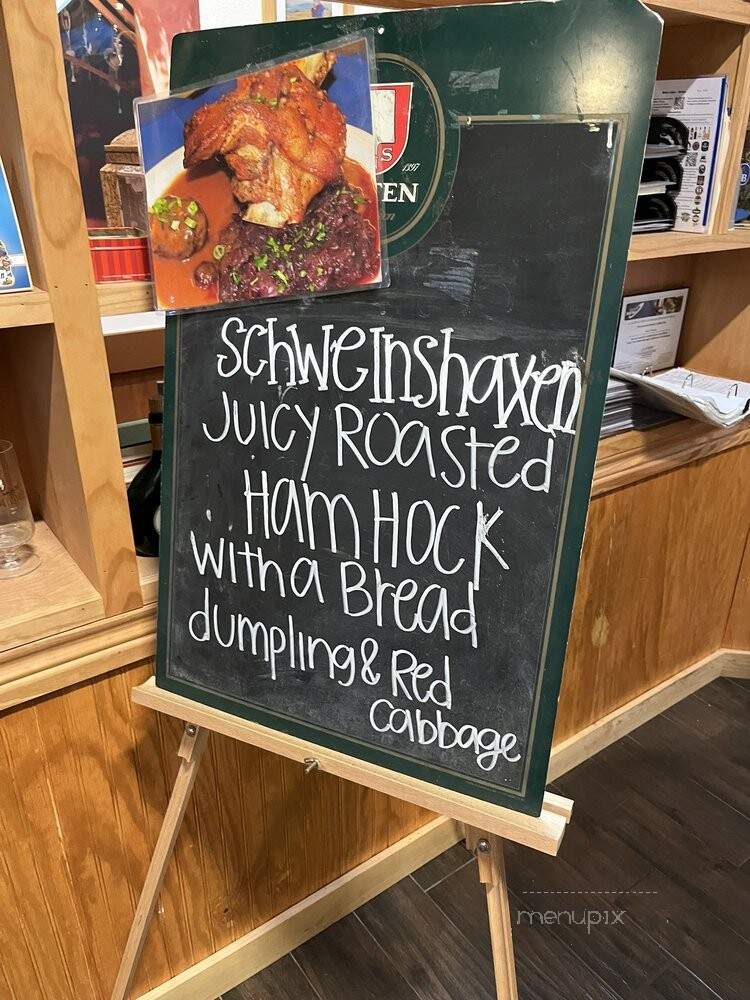 S
1397
TEN
SCHWEINSHAXEN
JUICY ROASTED
HAM HOCK
WITH a BREAD
dumpling & Red
Cabbage
menupix